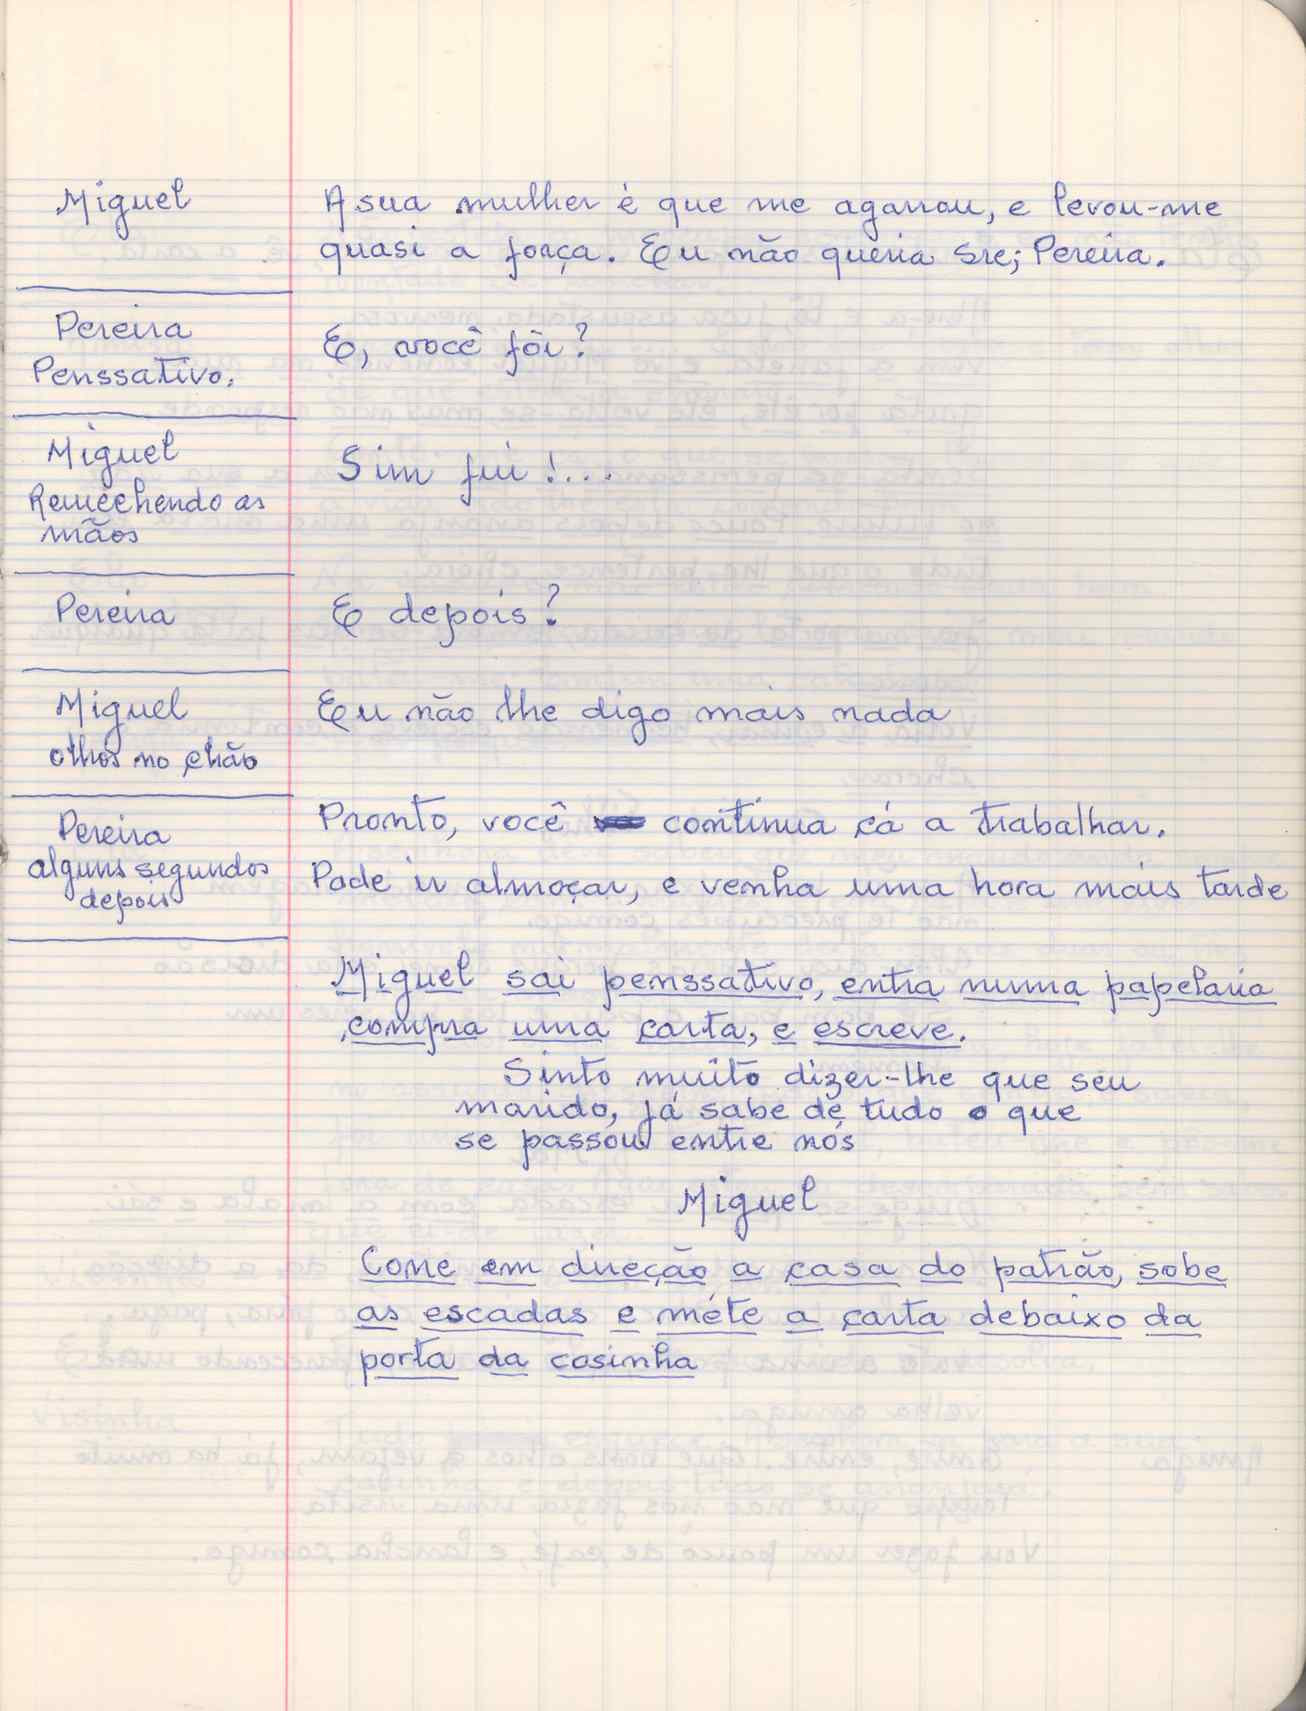 Miguel
A sua mulher é que me agarrou, e levou-me
quasi a força. Eu não queria Sre; Pereira.
Pereira
Penssativo.
E, você fôi?
Miguel
Remechendo as
mãos
Sim fui !...
Pereira
E depois?
Miguel
olhos no chão
Eu não lhe digo mais nada
Pereira
alguns segundos
depois
Pronto, você continua cá a trabalhar.
Pode ir almoçar, e venha uma hora mais tarde
Miguel sai penssativo, entra numa papelaria
compra uma carta, e escreve.
Sinto muito dizer-lhe que seu
marido, já sabe de tudo o que
se passou entre nós
Miguel
Corre em direcção a casa do patrão, sobe
as escadas e méte a carta debaixo da
porta da cosinha